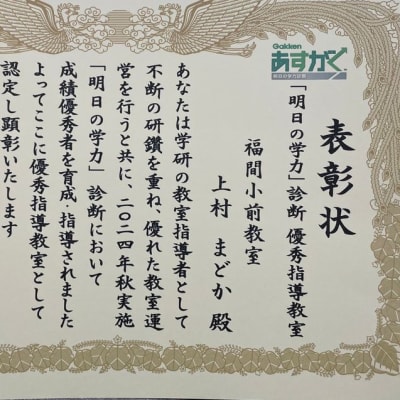 Gakken
あすがく
明日の学力診断
表彰状
「明日の学力」診断 優秀指導教室
福間小前教室
上村 まどか 殿
あなたは学研の教室指導者として
不断の研鑽を重ね、優れた教室運
営を行うと共に、二〇二四年秋実施
「明日の学力」診断において
成績優秀者を育成・指導されました
よってここに優秀指導教室として
認定し顕彰いたします